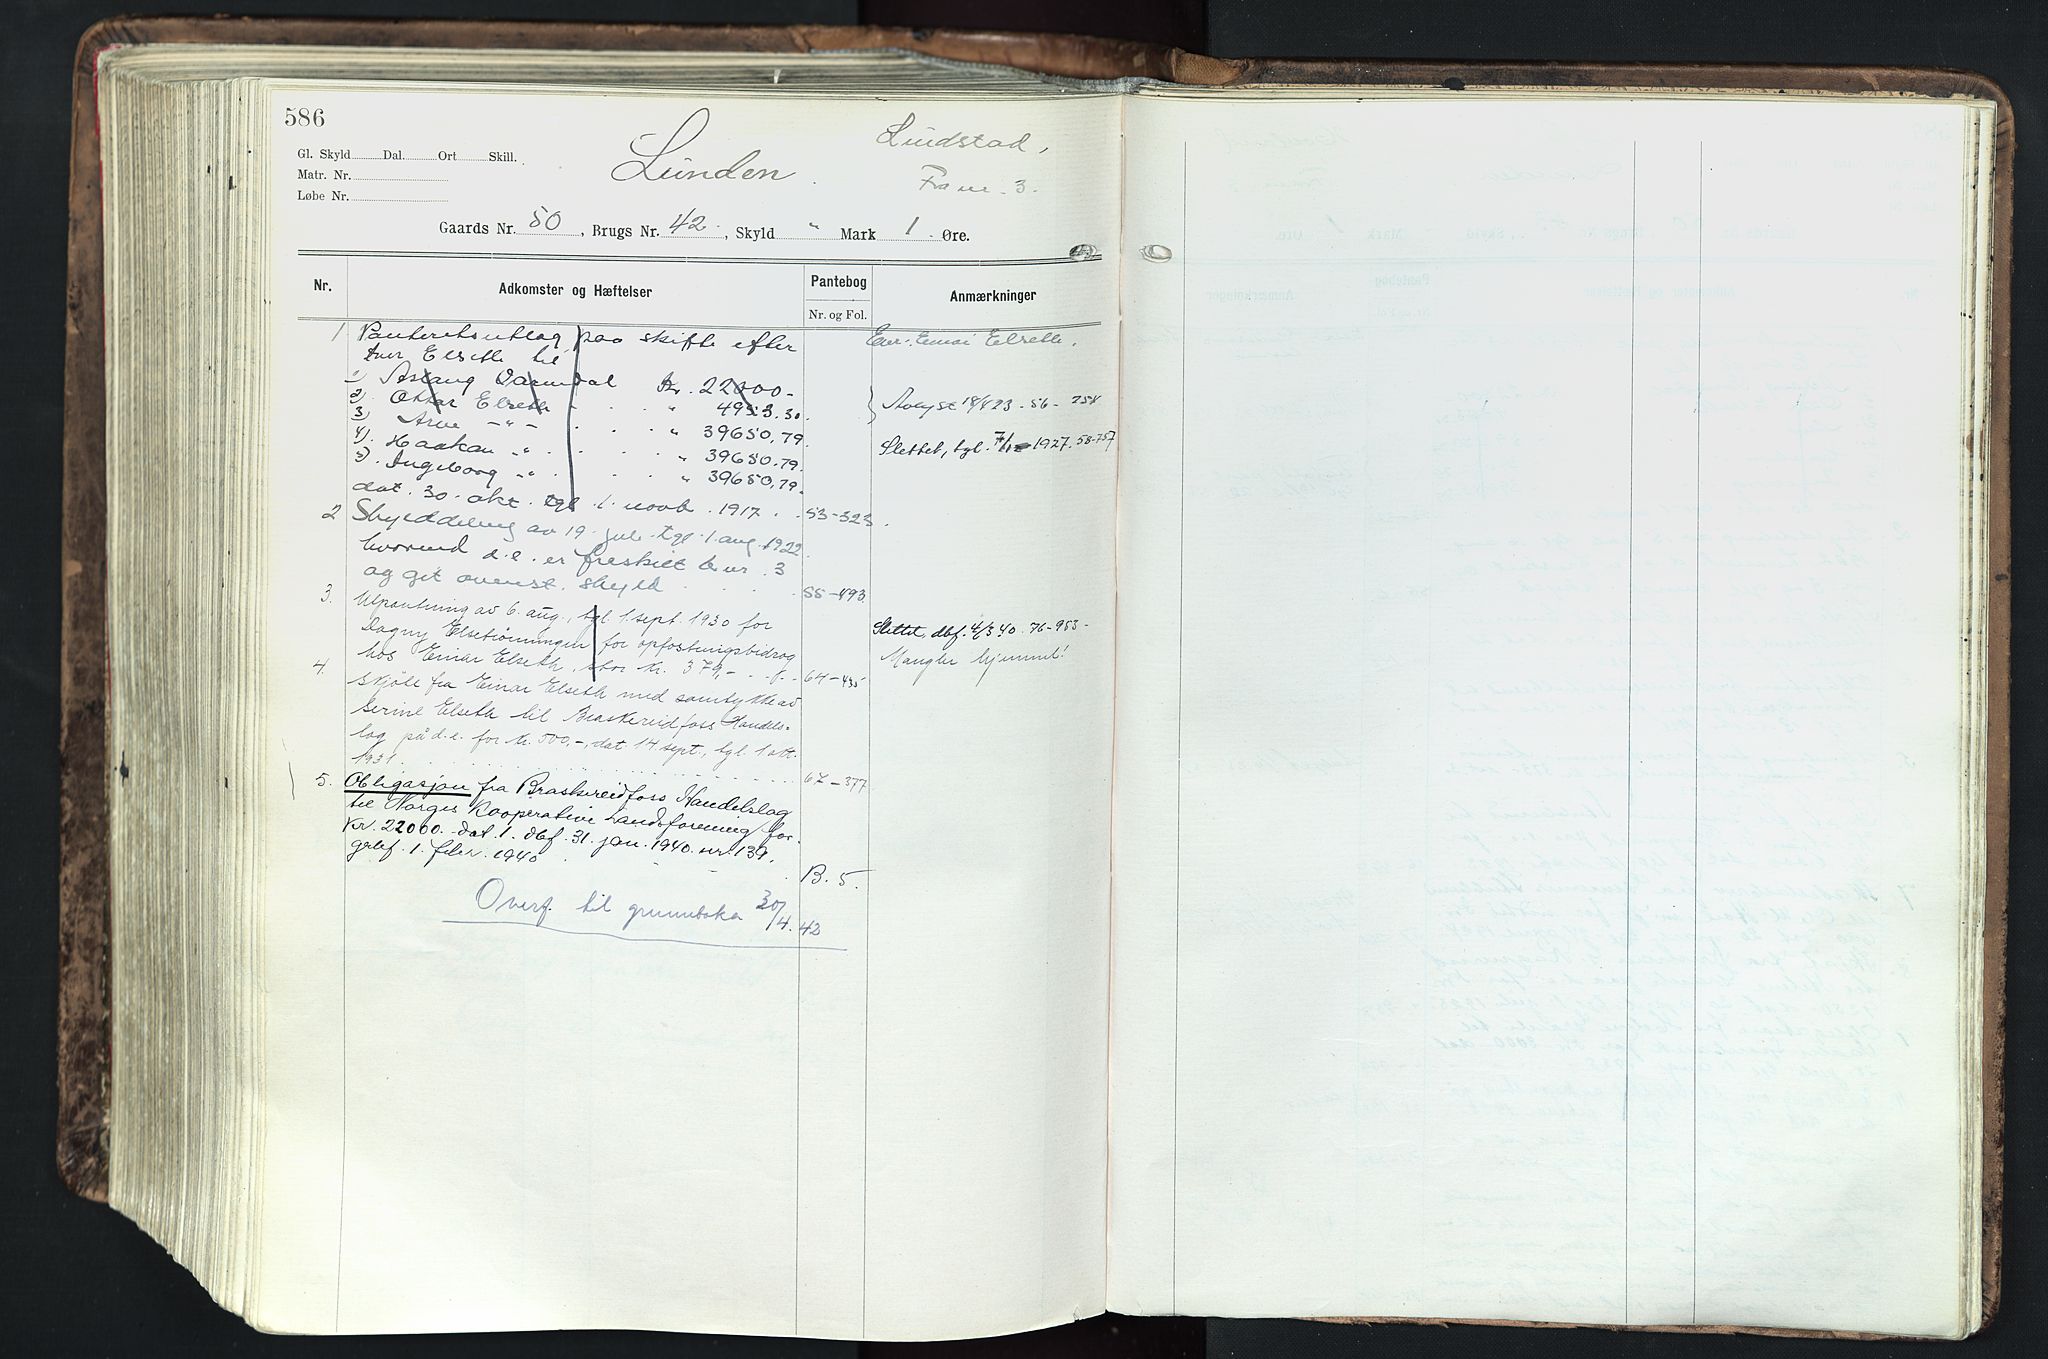 586
Gl. Skyld Dal. Ort Skill.
Matr. Nr.
Løbe Nr.
Lunden
Lindstad,
Fra nr. 3.
Gaards Nr. 50, Brugs Nr. 42, Skyld " Mark 1 Øre.
Nr. Adkomster og Hæftelser Pantebog Anmærkninger
Nr. og Fol.
1 Panteretsutlæg paa skifte efter
Iver Elseth til Eier: Einar Elseth.
1) Aslaug Kr. 22000-
2) Ottar Elseth " 4953.30 Avlyst 18/4 23. 56-758
3) Arne -"- " 39650.79
4) Haakon " " 39650.79 Slettet, tgl. 1927. 58-757
5) Ingeborg " " 39650.79
dat. 30. okt. tgl. 1. novb. 1917. 53-323
2 Skylddeling av 19. juli tgl. 1. aug. 1922
hvorved d.e. er fraskilt br. nr. 3
og git ovenst. skyld 55-493
3. Utpantning av 6. aug., tgl. 1. sept. 1930 for
Dagny for opfostringsbidrag Slettet, dbf. 4/3 40. 76-953-
hos Einar Elseth, stor kr. 379,- 64-435 Mangler hjemmel!
4. Skjöte fra Einar Elseth med samtykke av
Serine Elseth til Braskereidfoss Handels-
lag på d.e. for kr. 500,-, dat. 14 sept., tgl. 1 okt.
1931. 67-377
5. Obligasjon fra Braskereidfoss Handelslag
til Norges Kooperative Landsforening for
kr. 22000. dat. 1. dbf. 31. jan. 1940. nr. 139.
1. febr. 1940 B. 5.
Overf. til grunnboka 30/4. 42